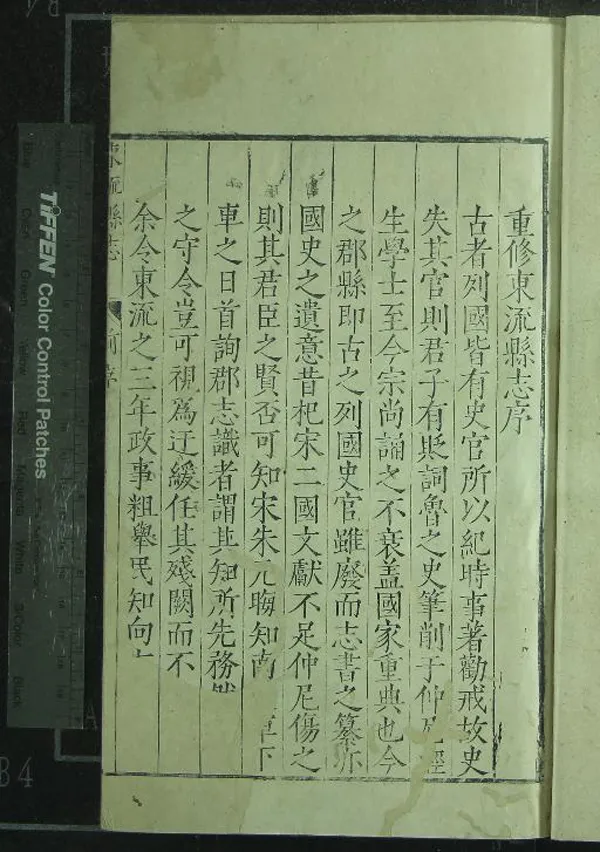 重修東流縣志序
古者列國皆有史官所以紀時事著勸戒故史
失其官則君子有貶詞魯之史筆削于仲尼經
生學士至今宗尚誦之不衰盖國家重典也今
之郡縣即古之列國史官雖廢而志書之纂亦
國史之遺意昔杞宋二國文獻不足仲尼傷之
則其君臣之賢否可知宋朱元晦知南 軍下
車之日首詢郡志識者謂其知所先務
之守令豈可視爲迂緩任其殘闕而不
余令東流之三年政事粗舉民知向
東流縣志 前序
TIFFEN Color Control Patches
Blue Cyan Green Yellow Red Magenta White 3/Color Black
B4
A